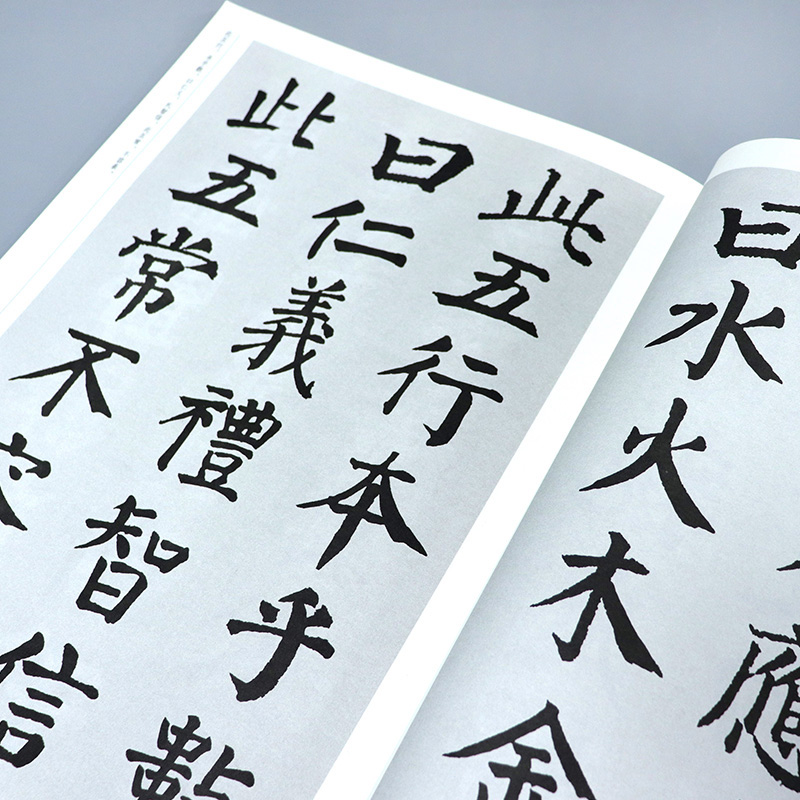 應
曰水火木金
此五行本乎數
曰仁義禮智信
此五常不